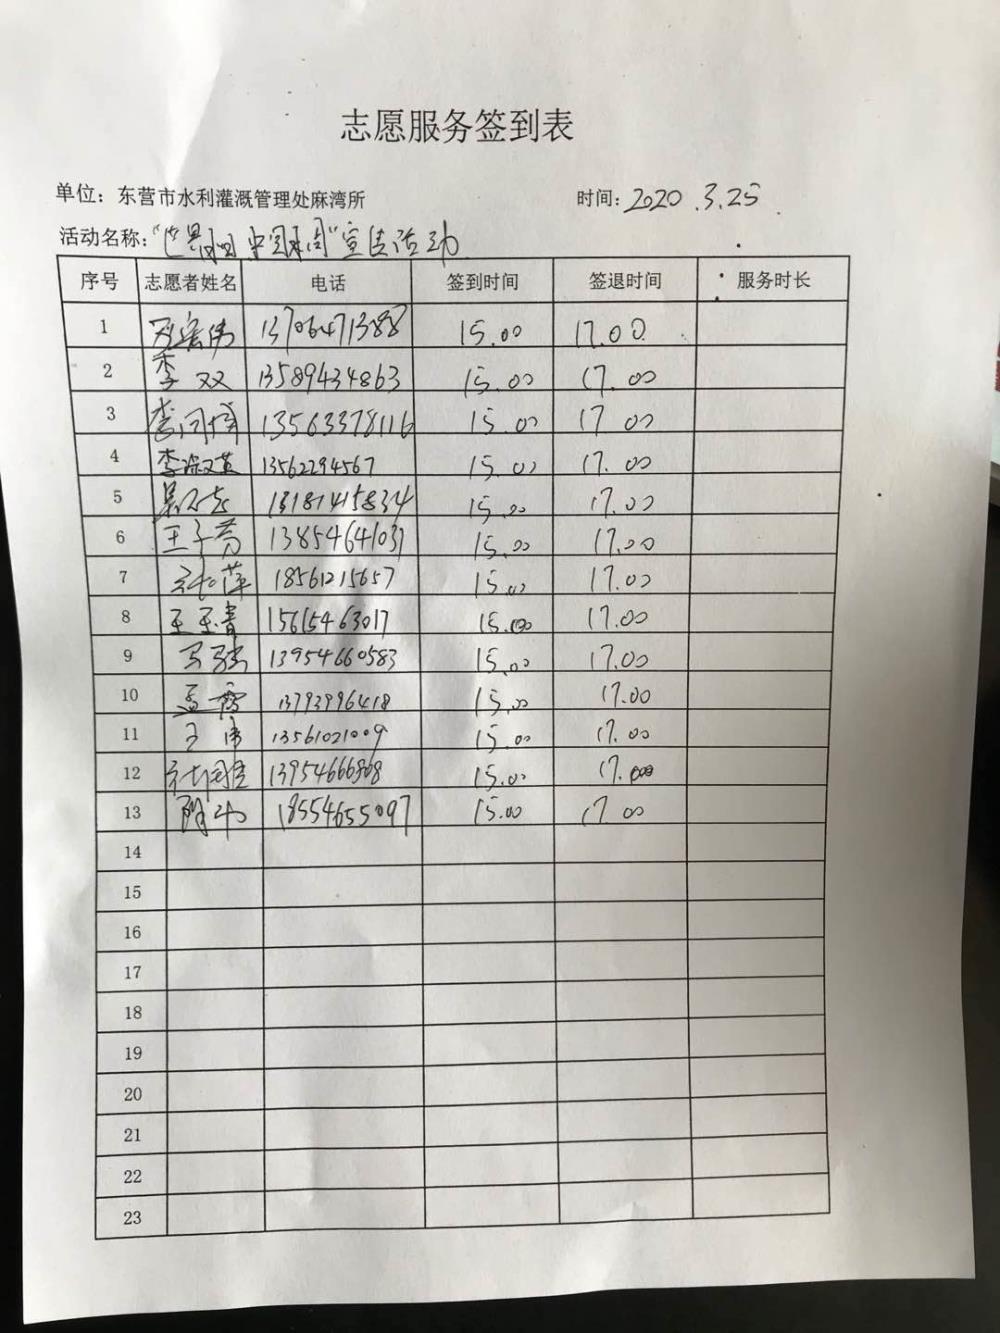 志愿服务签到表
单位：东营市水利灌溉管理处麻湾所 时间：2020.3.25
活动名称：“世界水日 中国水周”宣传活动
序号 志愿者姓名 电话 签到时间 签退时间 服务时长
1 13706471388 15.00 17.00
2 李双 13589434863 15.00 17.00
3 13563378116 15.00 17.00
4 李淑英 13562294567 15.00 17.00
5 13181415834 15.00 17.00
6 王子芳 13854641031 15.00 17.00
7 18561215657 15.00 17.00
8 王玉青 15615463017 15.00 17.00
9 13954660583 15.00 17.00
10 孟霞 13793996418 15.00 17.00
11 王伟 13561021009 15.00 17.00
12 15.00 17.00
13 18554655097 15.00 17.00
14
15
16
17
18
19
20
21
22
23